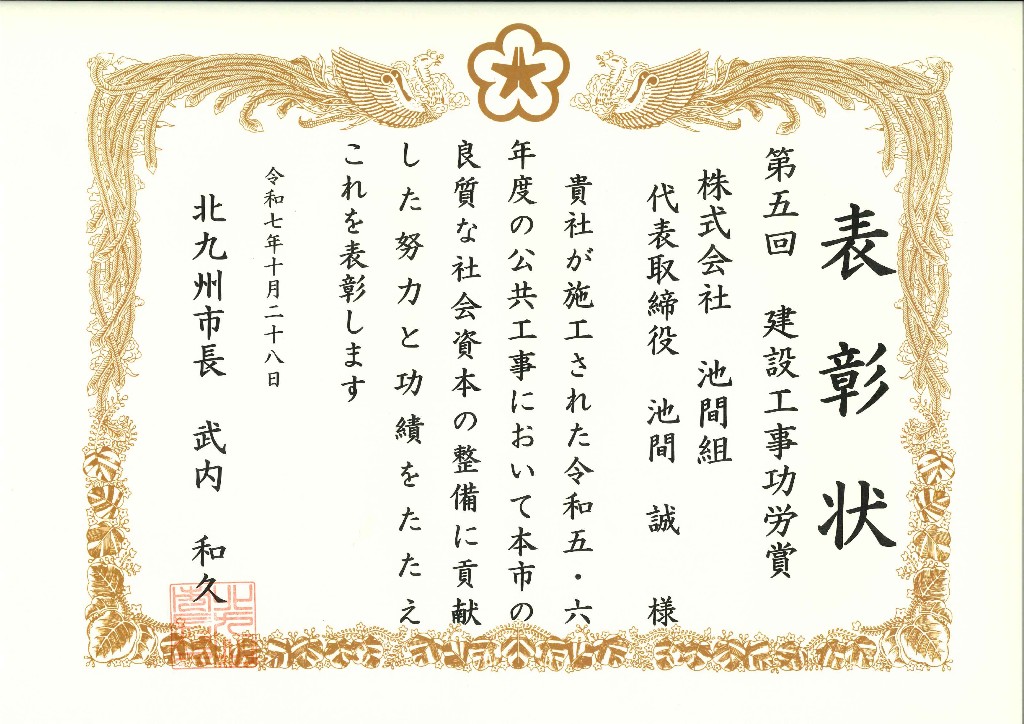 表彰状
第五回 建設工事功労賞
株式会社 池間組
代表取締役 池間 誠 様
貴社が施工された令和五・六
年度の公共工事において本市の
良質な社会資本の整備に貢献
した努力と功績をたたえ
これを表彰します
令和七年十月二十八日
北九州市長 武内 和久